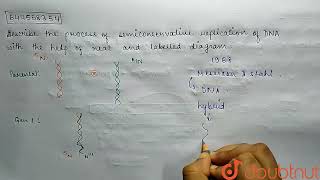 644558354
Describe the process of semiconservative replication of DNA
with the help of neat and labelled diagram.
1958
Parental:
Meselson & Stahl
DNA
hybrid
Gen I:
doubtnut